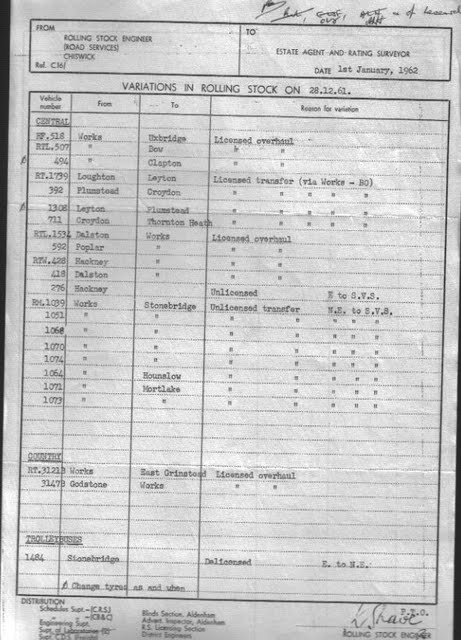 FROM
ROLLING STOCK ENGINEER
(ROAD SERVICES)
CHISWICK
Ref. C16/
TO
ESTATE AGENT AND RATING SURVEYOR
DATE 1st January, 1962
VARIATIONS IN ROLLING STOCK ON 28.12.61.
Vehicle number From To Reason for variation
CENTRAL
RF.518 Works Uxbridge Licensed overhaul
RTL.507 " Bow " "
494 " Clapton " "
RT.1739 Loughton Leyton Licensed transfer (via Works - BO)
392 Plumstead Croydon " " " " "
1308 Leyton Plumstead " " " " "
711 Croydon Thornton Heath " " " " "
RTL.153 Dalston Works Licensed overhaul
592 Poplar " " "
RTW.428 Hackney " " "
418 Dalston " " "
276 Hackney Unlicensed E to S.V.S.
RM.1039 Works Stonebridge Unlicensed transfer N.E. to S.V.S.
1051 " " " " " " "
1068 " " " " " " "
1070 " " " " " " "
1074 " " " " " " "
1064 " Hounslow " " " " "
1071 " Mortlake " " " " "
1073 " " " " " " "
COUNTRY
RT.3121 Works East Grinstead Licensed overhaul
3147 Godstone Works " "
TROLLEYBUSES
1484 Stonebridge Delicensed E. to N.E.
Change tyres as and when
DISTRIBUTION
Schedules Supt.—(C.R.S.)
—(CB&C)
Engineering Supt.
Supt. of Laboratories (2)
Supt. C.D.S.
Blinds Section, Aldenham
Advert. Inspector, Aldenham
R.S. Licensing Section
District Engineers
ROLLING STOCK ENGINEER